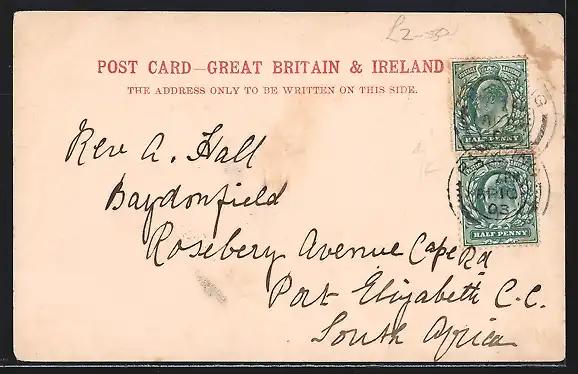 £2-50
POST CARD—GREAT BRITAIN & IRELAND
THE ADDRESS ONLY TO BE WRITTEN ON THIS SIDE.
HALF PENNY
HALF PENNY
Rev A. Hall
Baydonfield
Rosebery Avenue Cape Rd
Port Elizabeth C.C.
South Africa